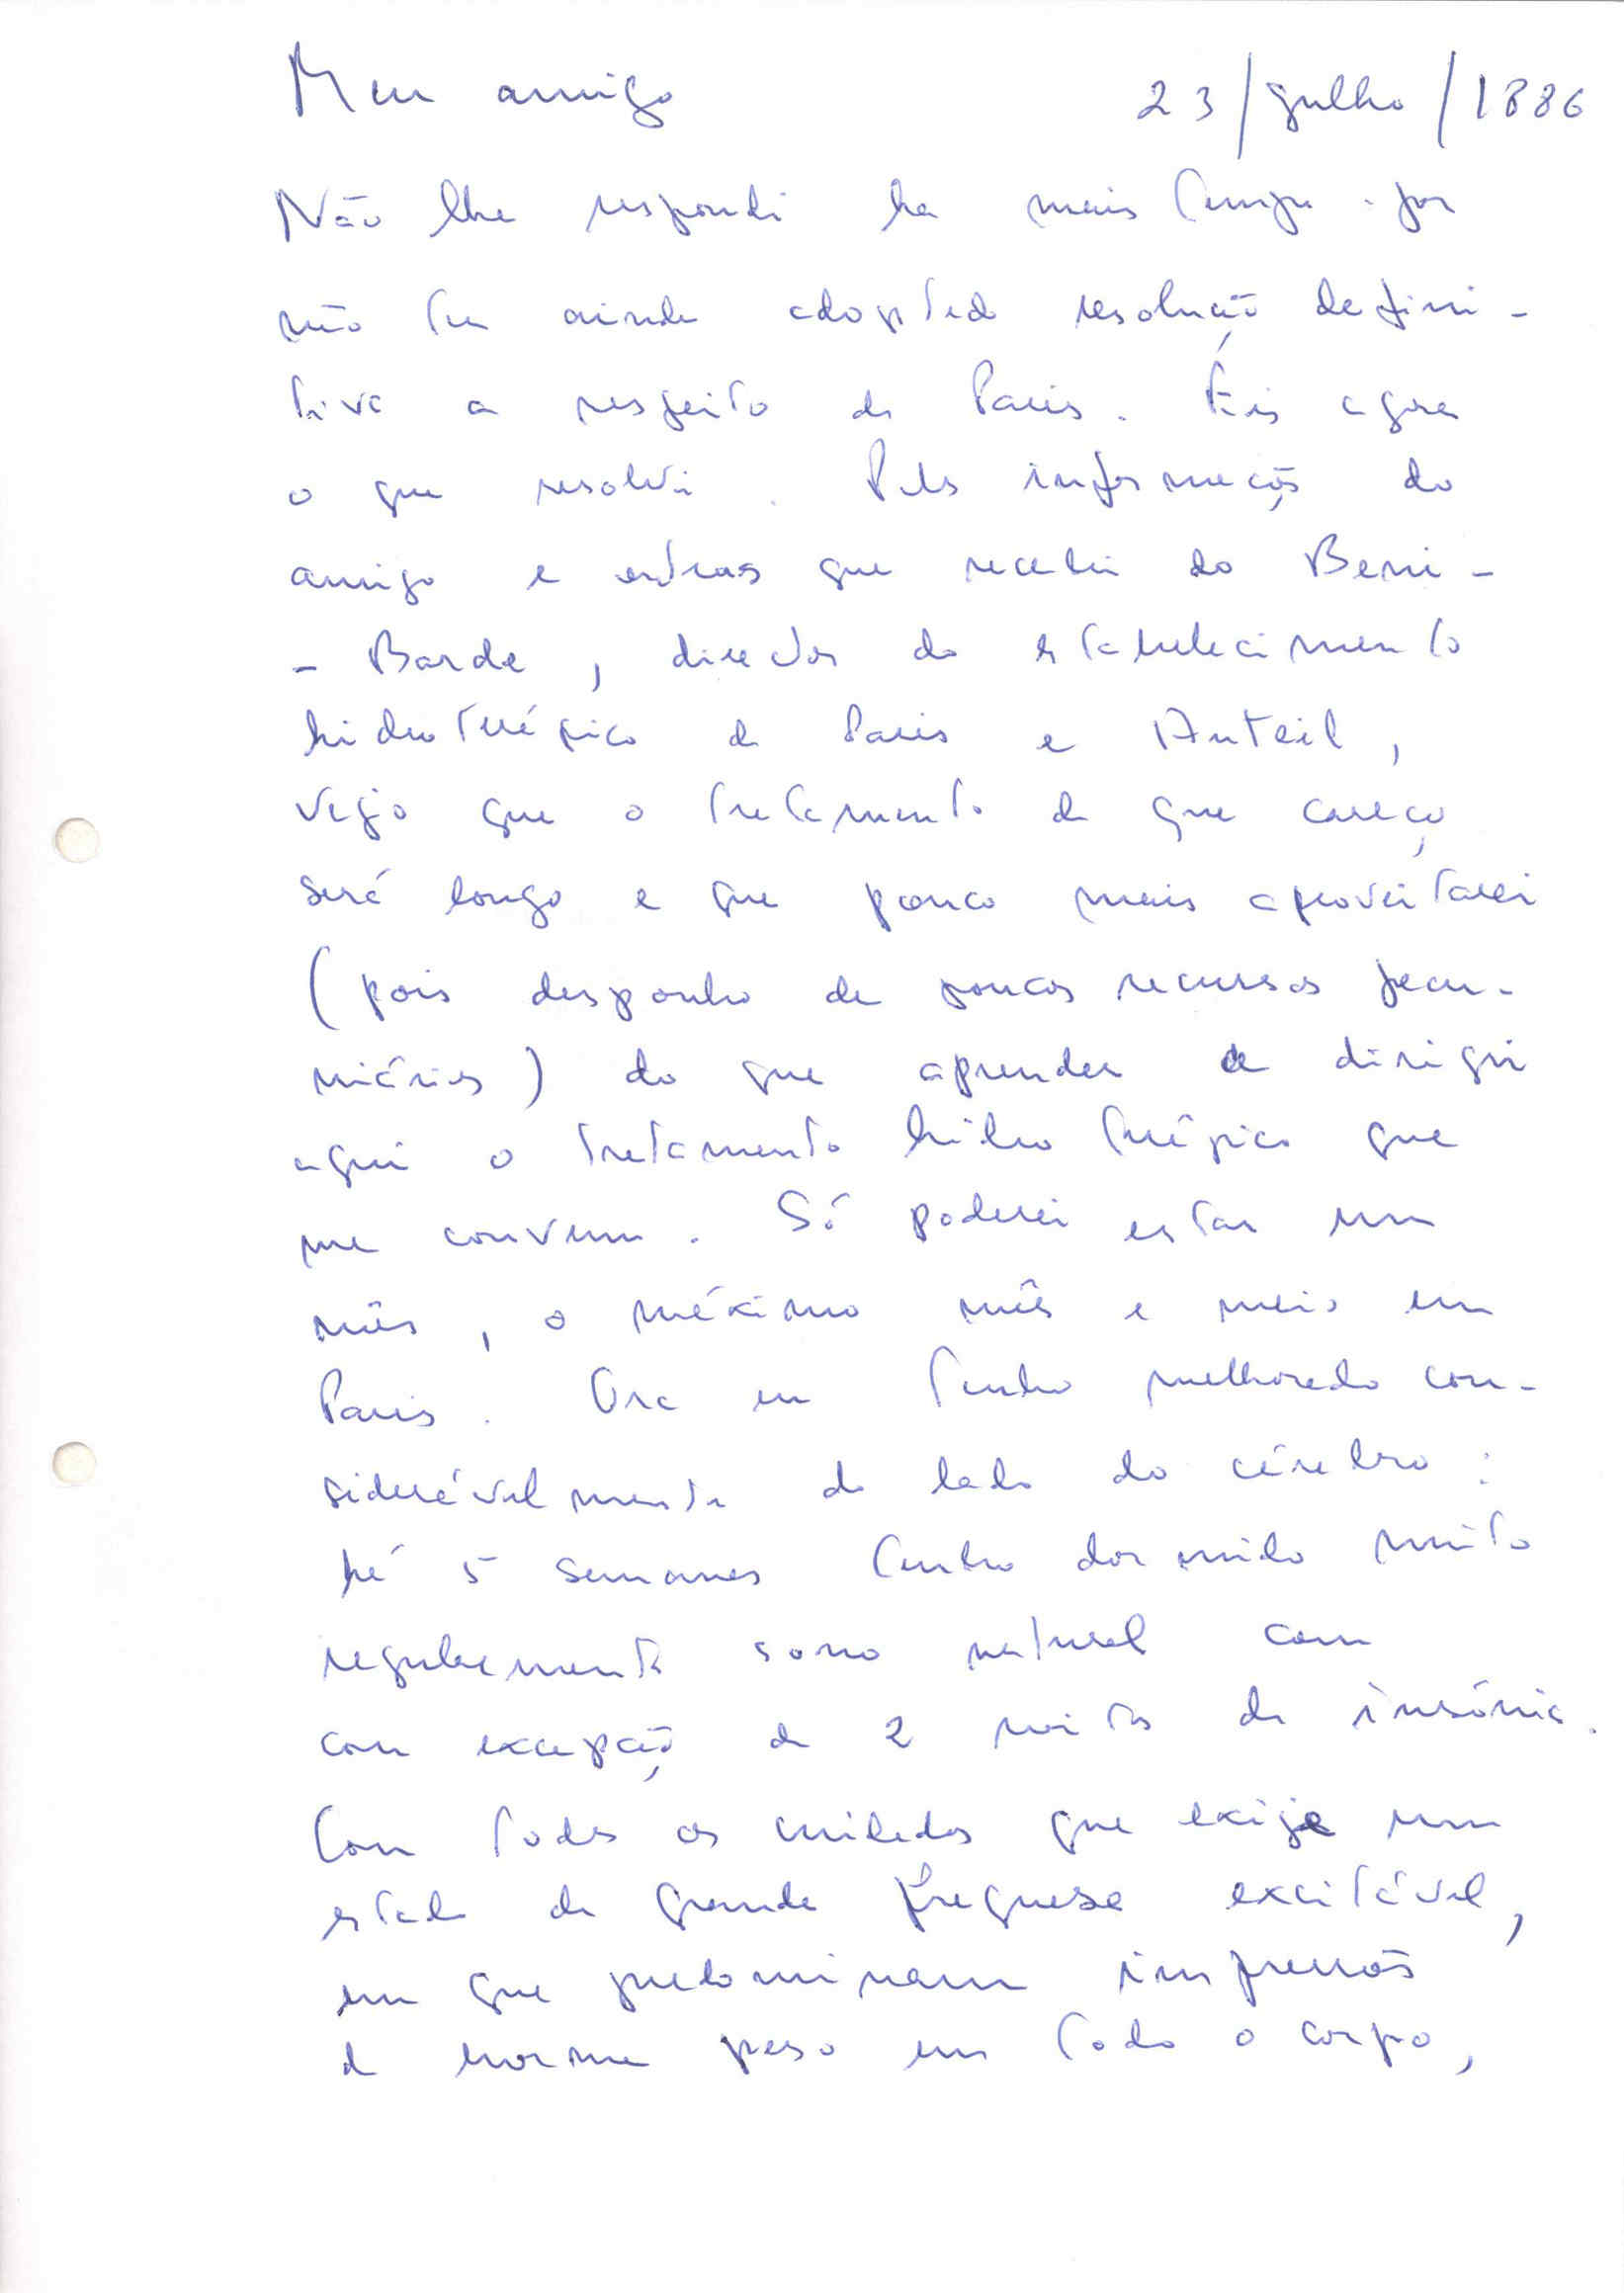 Meu amigo 23/julho/1886
Não lhe respondi ha mais tempo por
não ter ainda adoptado resolução defini-
tiva a respeito de Paris. Eis agora
o que resolvi. Pelas informações do
amigo e outras que recebi do Beni-
- Barde, director do estabelecimento
hidroterápico de Paris e Auteil,
vejo que o tratamento de que careço
será longo e que pouco mais aproveitarei
(pois desponho de poucos recursos pecu-
niários) do que aprender a dirigir
aqui o tratamento hidroterápico que
me convem. Só poderei estar um
mês, o máximo mês e meio em
Paris. Ora eu tenho melhorado con-
sideràvelmente do lado do cérebro:
há 5 semanas tenho dormido muito
regularmente sono natural com
com excepção de 2 noites de insónia.
Com todos os cuidados que exige um
estado de grande fraqueza excitável,
em que predominam impressões
de enorme peso em todo o corpo,